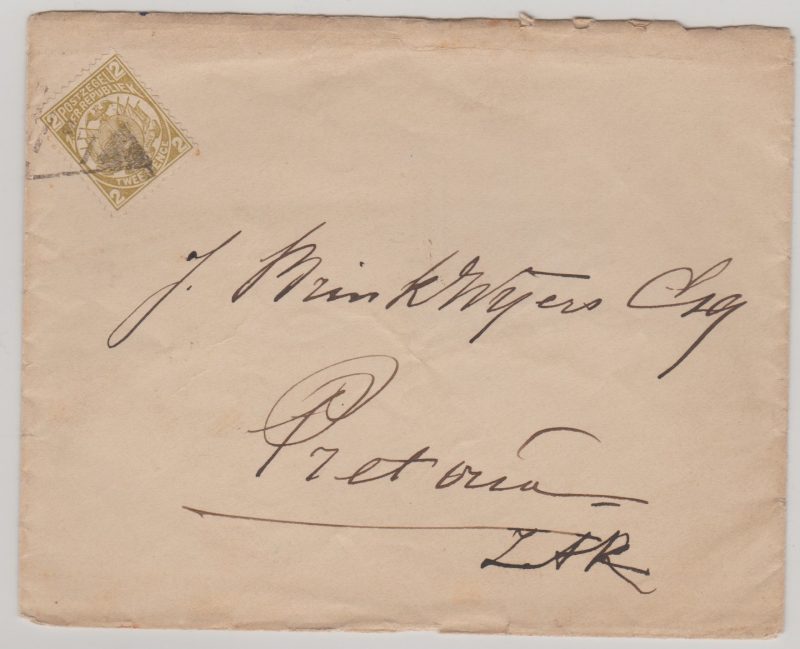 POSTZEGEL
Z. AFR. REPUBLIEK
2 2 2 2
TWEE PENCE
J. Brink Wyers Esq
Pretoria
ZAR